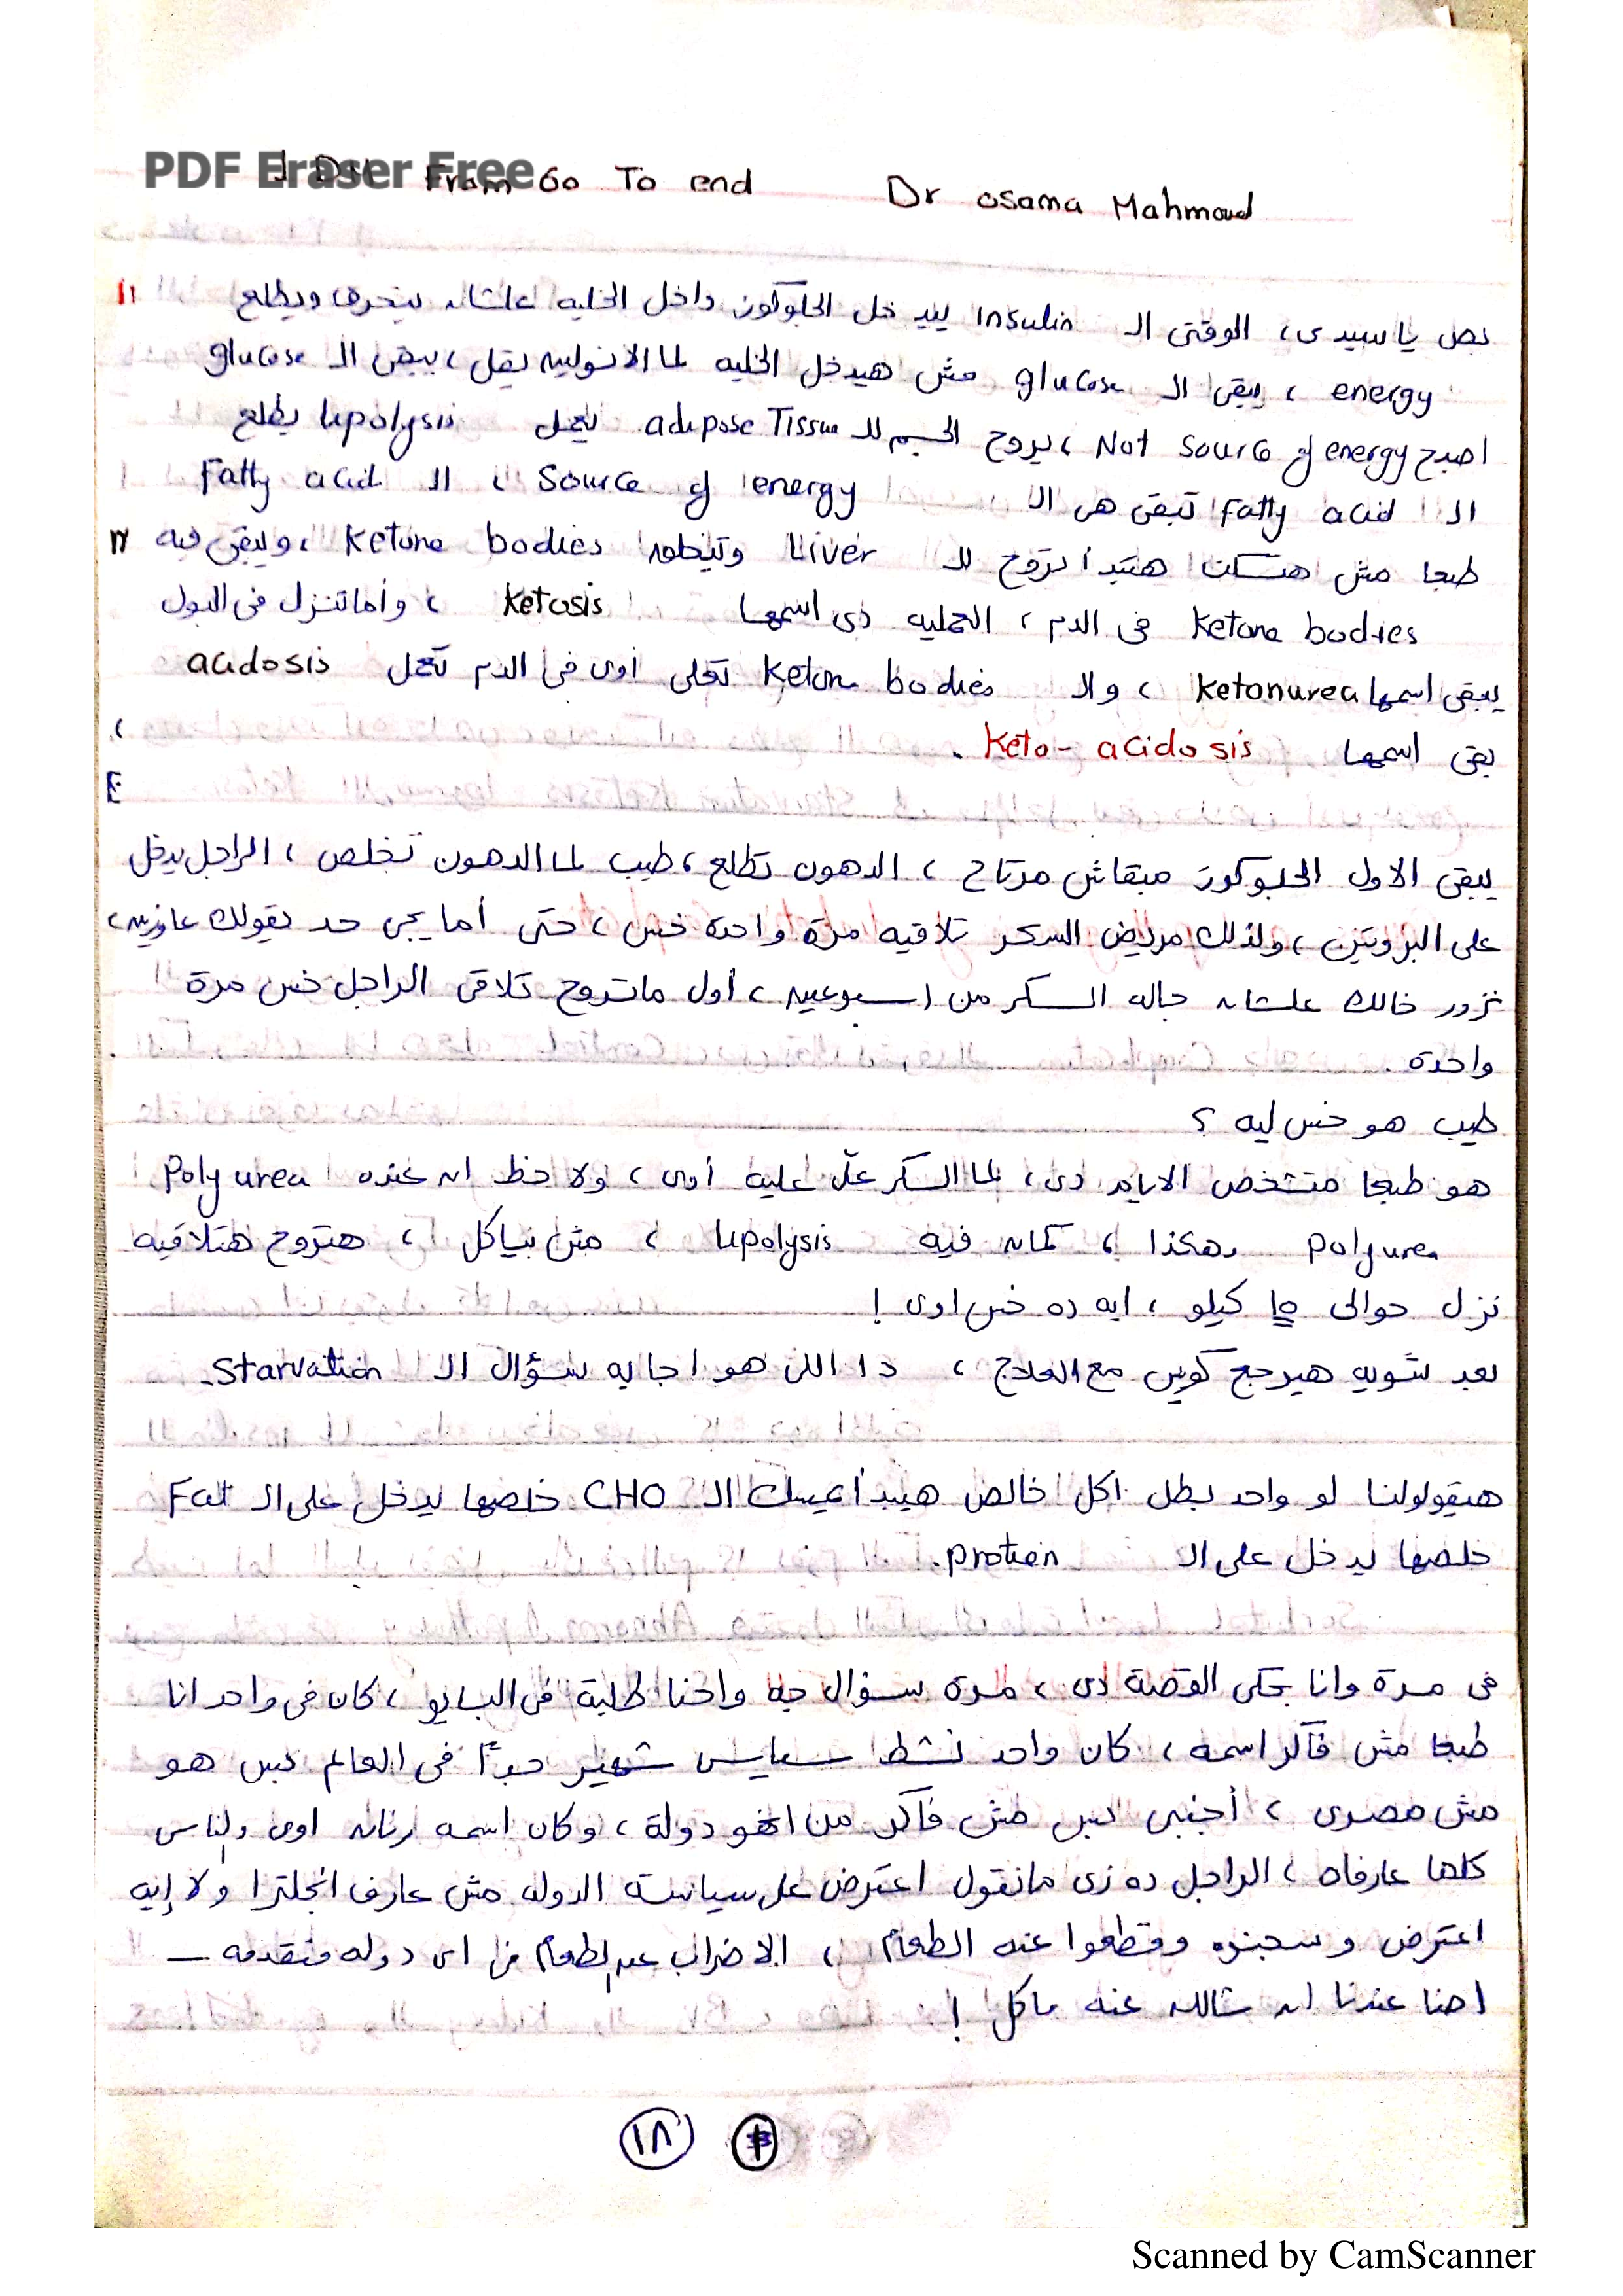 PDF Eraser Free
DM From 60 To end Dr osama Mahmoud
بص يا سيدى، الوقتى الـ insulin بيدخل الجلوكوز داخل الخليه علشان يتحرق ويطلع
energy ، يبقى الـ glucose مش هيدخل الخليه لما الانسولين يقل، يبقى الـ glucose
اصبح Not source of energy ، يروح الجسم للـ adipose Tissue يعمل lipolysis يطلع
الـ Fatty acid تبقى هى الـ source of energy ، الـ Fatty acid
طبعا مش هتسكت هتبدأ تروح للـ Liver وتيطلع ketone bodies ، ويبقى فيه
ketone bodies فى الدم ، العمليه دى اسمها ketosis ، وأما تنزل فى البول
يبقى اسمها ketonurea ، والـ ketone bodies تعلى أوى فى الدم تعمل acidosis
يبقى اسمها Keto-acidosis .
يبقى الاول الجلوكوز مبقاش مرتاح ، الدهون تطلع ، طيب لما الدهون تخلص ، الراجل يدخل
على البروتين ، ولذلك مريض السكر تلاقيه مرة واحدة خس ، حتى أما يجى حد يقولك عاوزين
نزور خالك علشان جاله السكر من اسبوعين ، أول ماتروح تلاقى الراجل خس مرة
واحدة .
طيب هو خس ليه ؟
هو طبعا متشخص الايام دى ، لما السكر علّى عليه أوى ، ولاحظ ان عنده Polyurea
polyurea وهكذا ، كمان فيه lipolysis ، مش بياكل ، هتروح هتلاقيه
نزل حوالى ١٥ كيلو ، ايه ده خس اوى !
بعد شويه هيرجع كويس مع العلاج ، دا اللى هو اجابه سؤال الـ Starvation.
هيقولولنا لو واحد بطل اكل خالص هيبدأ يمسك الـ CHO خلصها يدخل على الـ Fat
خلصها يدخل على الـ protien.
فى مرة وانا بحكى القصة دى ، مرة سؤال جه واحنا طلبة فى البايو ، كان فى واحد انا
طبعا مش فاكر اسمه ، كان واحد نشط سياسى شهير جدًا فى العالم بس هو
مش مصرى ، أجنبى بس مش فاكر من انهو دولة ، وكان اسمه رنان اوى والناس
كلها عارفاه ، الراجل ده زى مانقول اعترض على سياسة الدوله مش عارف انجلترا ولا إيه
اعترض وسجنوه وقطعوا عنه الطعام ، الاضراب عن الطعام فى اى دوله متقدمه —
احنا عندنا ان شالله عنه ماكل !
١٨
Scanned by CamScanner